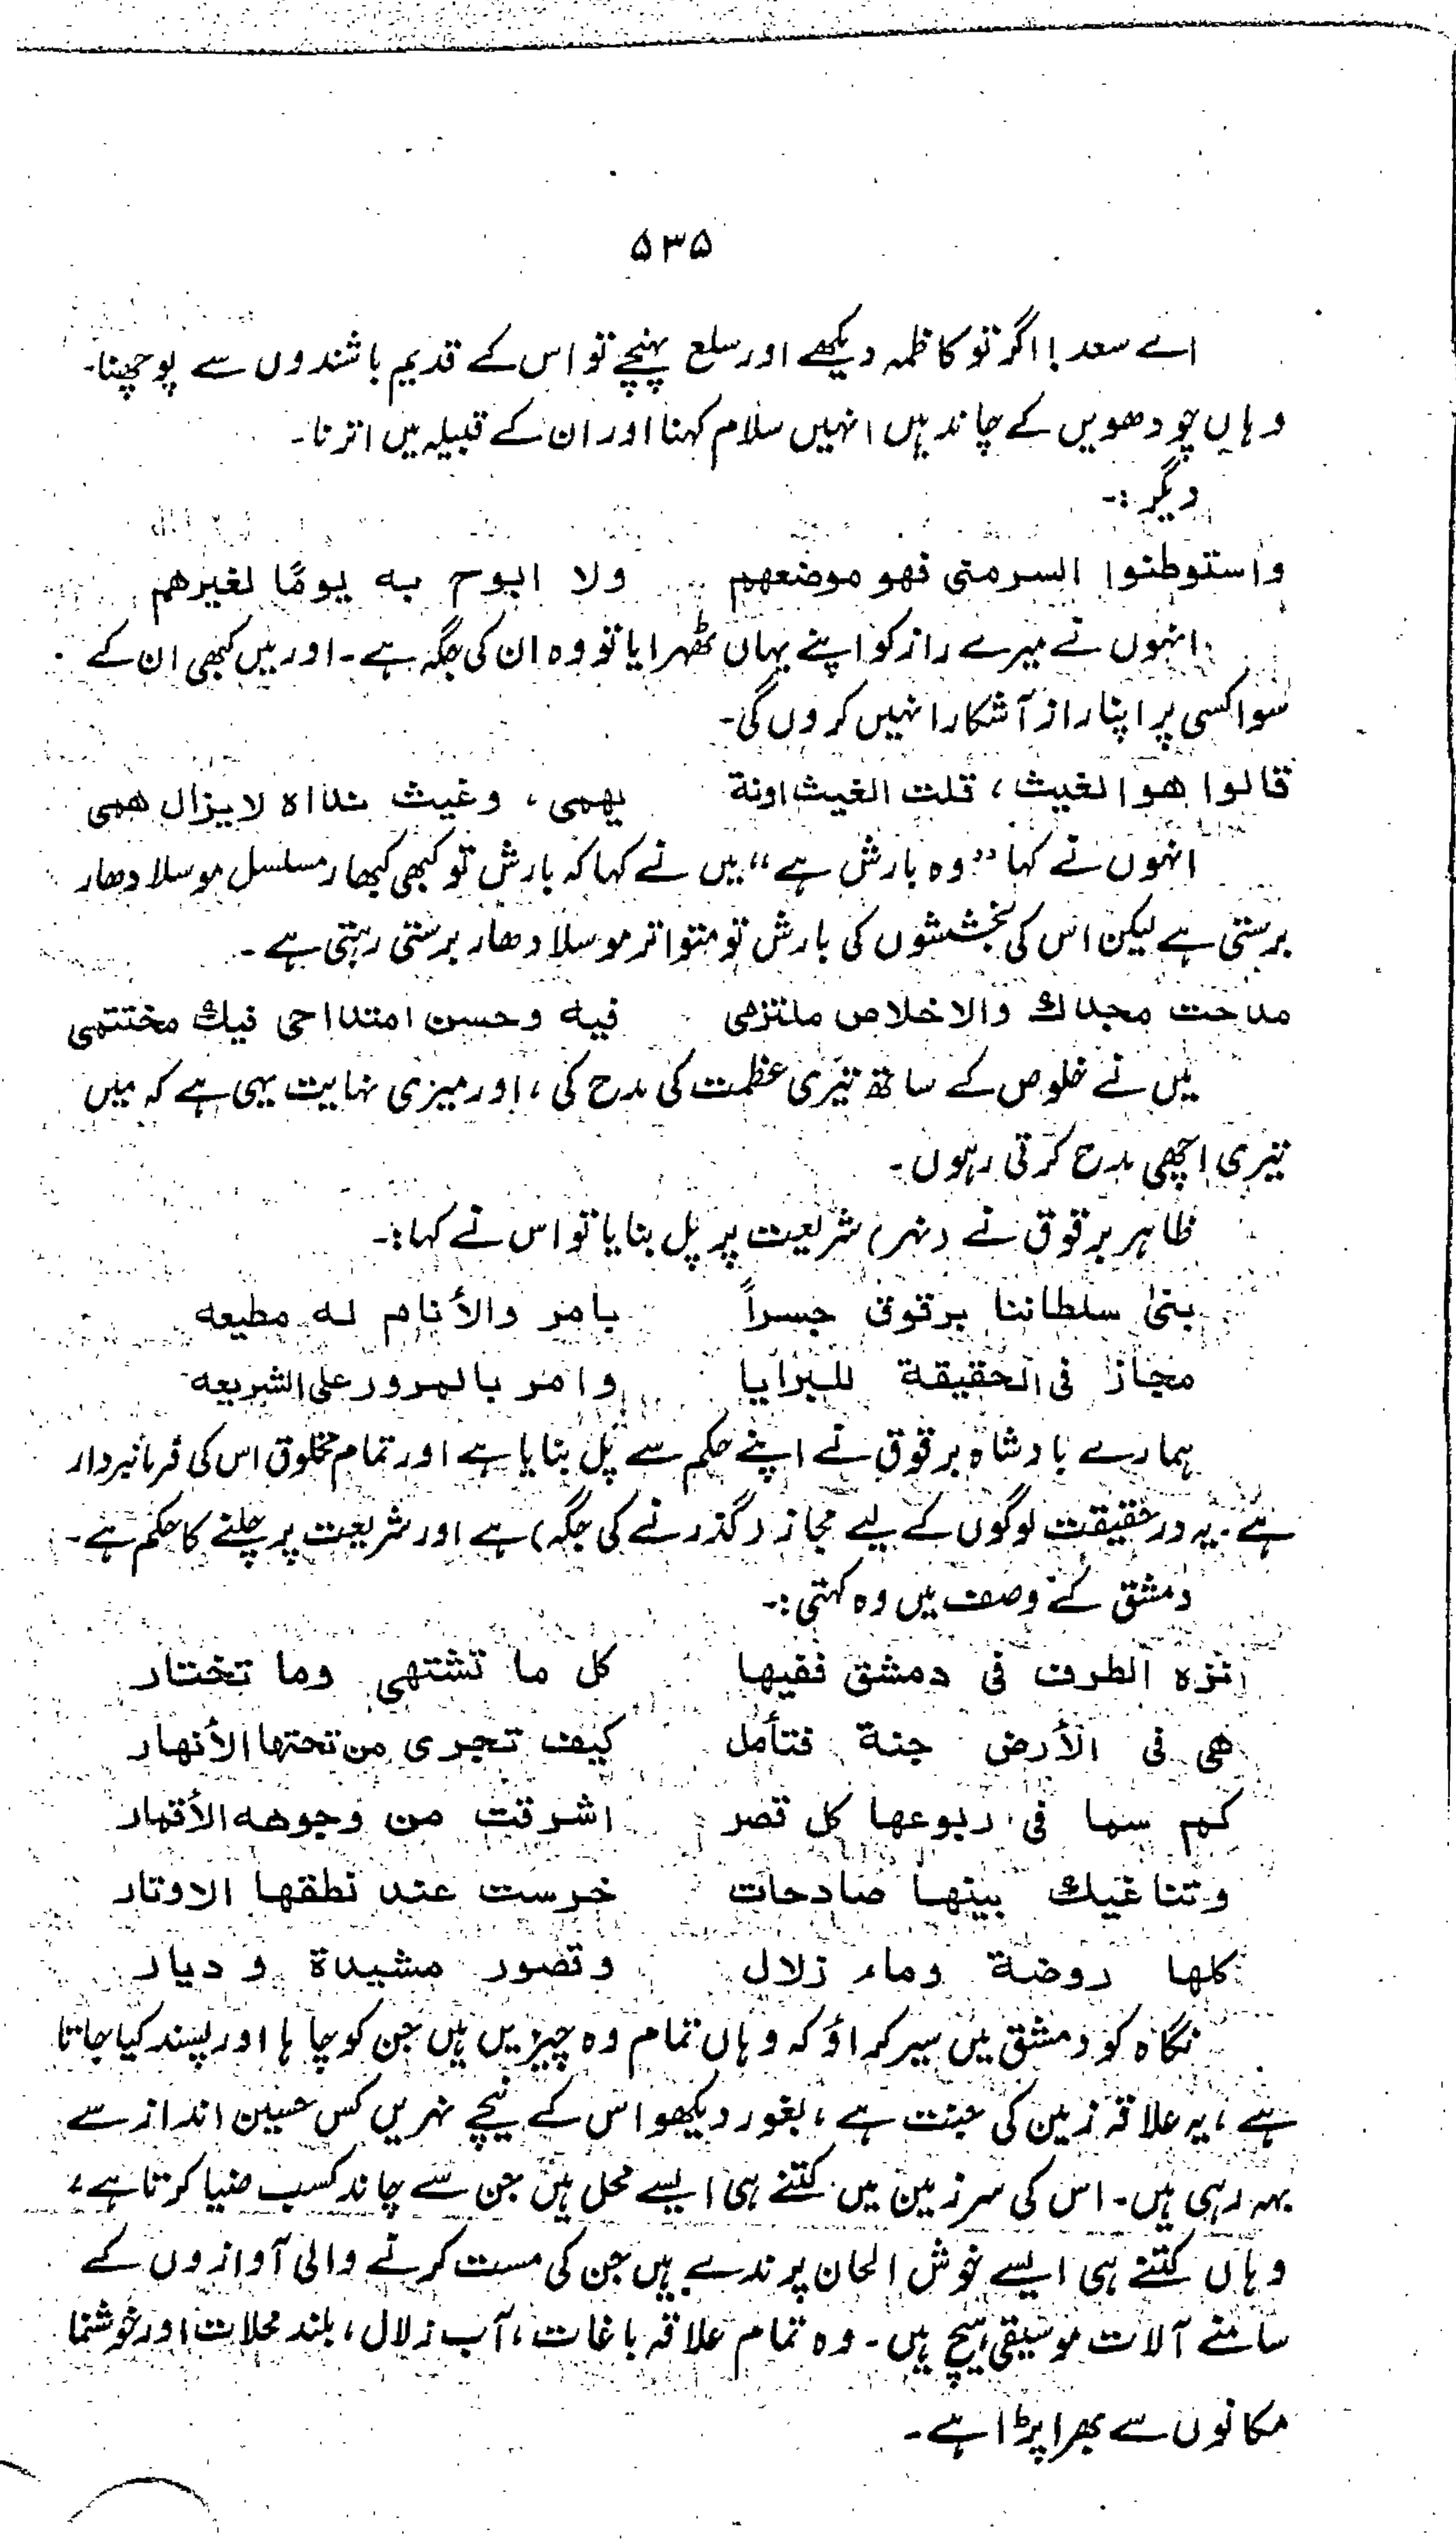 ۵۳۵
اے سعد! اگر تو کاظمہ دیکھے اور سلع پہنچے تو اس کے قدیم باشندوں سے پوچھنا۔
وہاں چودھویں کے چاند ہیں انہیں سلام کہنا اور ان کے قبیلہ میں اترنا۔
دیگر :۔
واستوطنوا السر منی فهو موضعهم ولا ابوح به یومًا لغیرهم
انہوں نے میرے راز کو اپنے یہاں ٹھہرایا تو وہ ان کی جگہ ہے۔ اور میں کبھی ان کے
سوا کسی پر اپنا راز آشکارا نہیں کروں گی۔
قالوا هو الغیث، قلت الغیث اونة یهمی، وغیث نداه لایزال همی
انہوں نے کہا ”وہ بارش ہے“ میں نے کہا کہ بارش تو کبھی کبھار مسلسل موسلا دھار
برستی ہے لیکن اس کی بخششوں کی بارش تو متواتر موسلا دھار برستی رہتی ہے۔
مدحت مجدك والاخلاص ملتزمی فیه وحسن امتداحی فیك مختتمی
میں نے خلوص کے ساتھ تیری عظمت کی مدح کی، اور میری نہایت یہی ہے کہ میں
تیری اچھی مدح کرتی رہوں۔
ظاہر برقوق نے (نہر) شریعت پر پل بنایا تو اس نے کہا:۔
بنیٰ سلطاننا برقوق جسراً بامر والأنام له مطیعه
مجاز فی الحقیقة للبرایا وامر بالمرور علی الشریعه
ہمارے بادشاہ برقوق نے اپنے حکم سے پل بنایا ہے اور تمام مخلوق اس کی فرمانبردار
ہے۔ یہ درحقیقت لوگوں کے لیے مجاز (گذرنے کی جگہ) ہے اور شریعت پر چلنے کا حکم ہے۔
دمشق کے وصف میں وہ کہتی :۔
نزه الطرف فی دمشق ففیها کل ما تشتهی وما تختار
هی فی الأرض جنة فتأمل کیف تجری من تحتها الأنهار
کم سما فی ربوعها کل قصر اشرقت من وجوهه الأقمار
وتناغیك بینها صادحات خرست عند نطقها الاوتار
کلها روضة وماء زلال وقصور مشیدة و دیار
نگاہ کو دمشق میں سیر کراؤ کہ وہاں تمام وہ چیزیں ہیں جن کو چاہا اور پسند کیا جاتا
ہے، یہ علاقہ زمین کی جنت ہے، بغور دیکھو اس کے نیچے نہریں کس حسین انداز سے
بہہ رہی ہیں۔ اس کی سرزمین میں کتنے ہی ایسے محل ہیں جن سے چاند کسب ضیا کرتا ہے،
وہاں کتنے ہی ایسے خوش الحان پرندے ہیں جن کی مست کرنے والی آوازوں کے
سامنے آلات موسیقی ہیچ ہیں۔ وہ تمام علاقہ باغات، آب زلال، بلند محلات اور خوشنما
مکانوں سے بھرا پڑا ہے۔